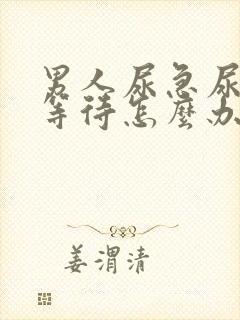 男人尿急尿
等待怎麼办
姜渭清